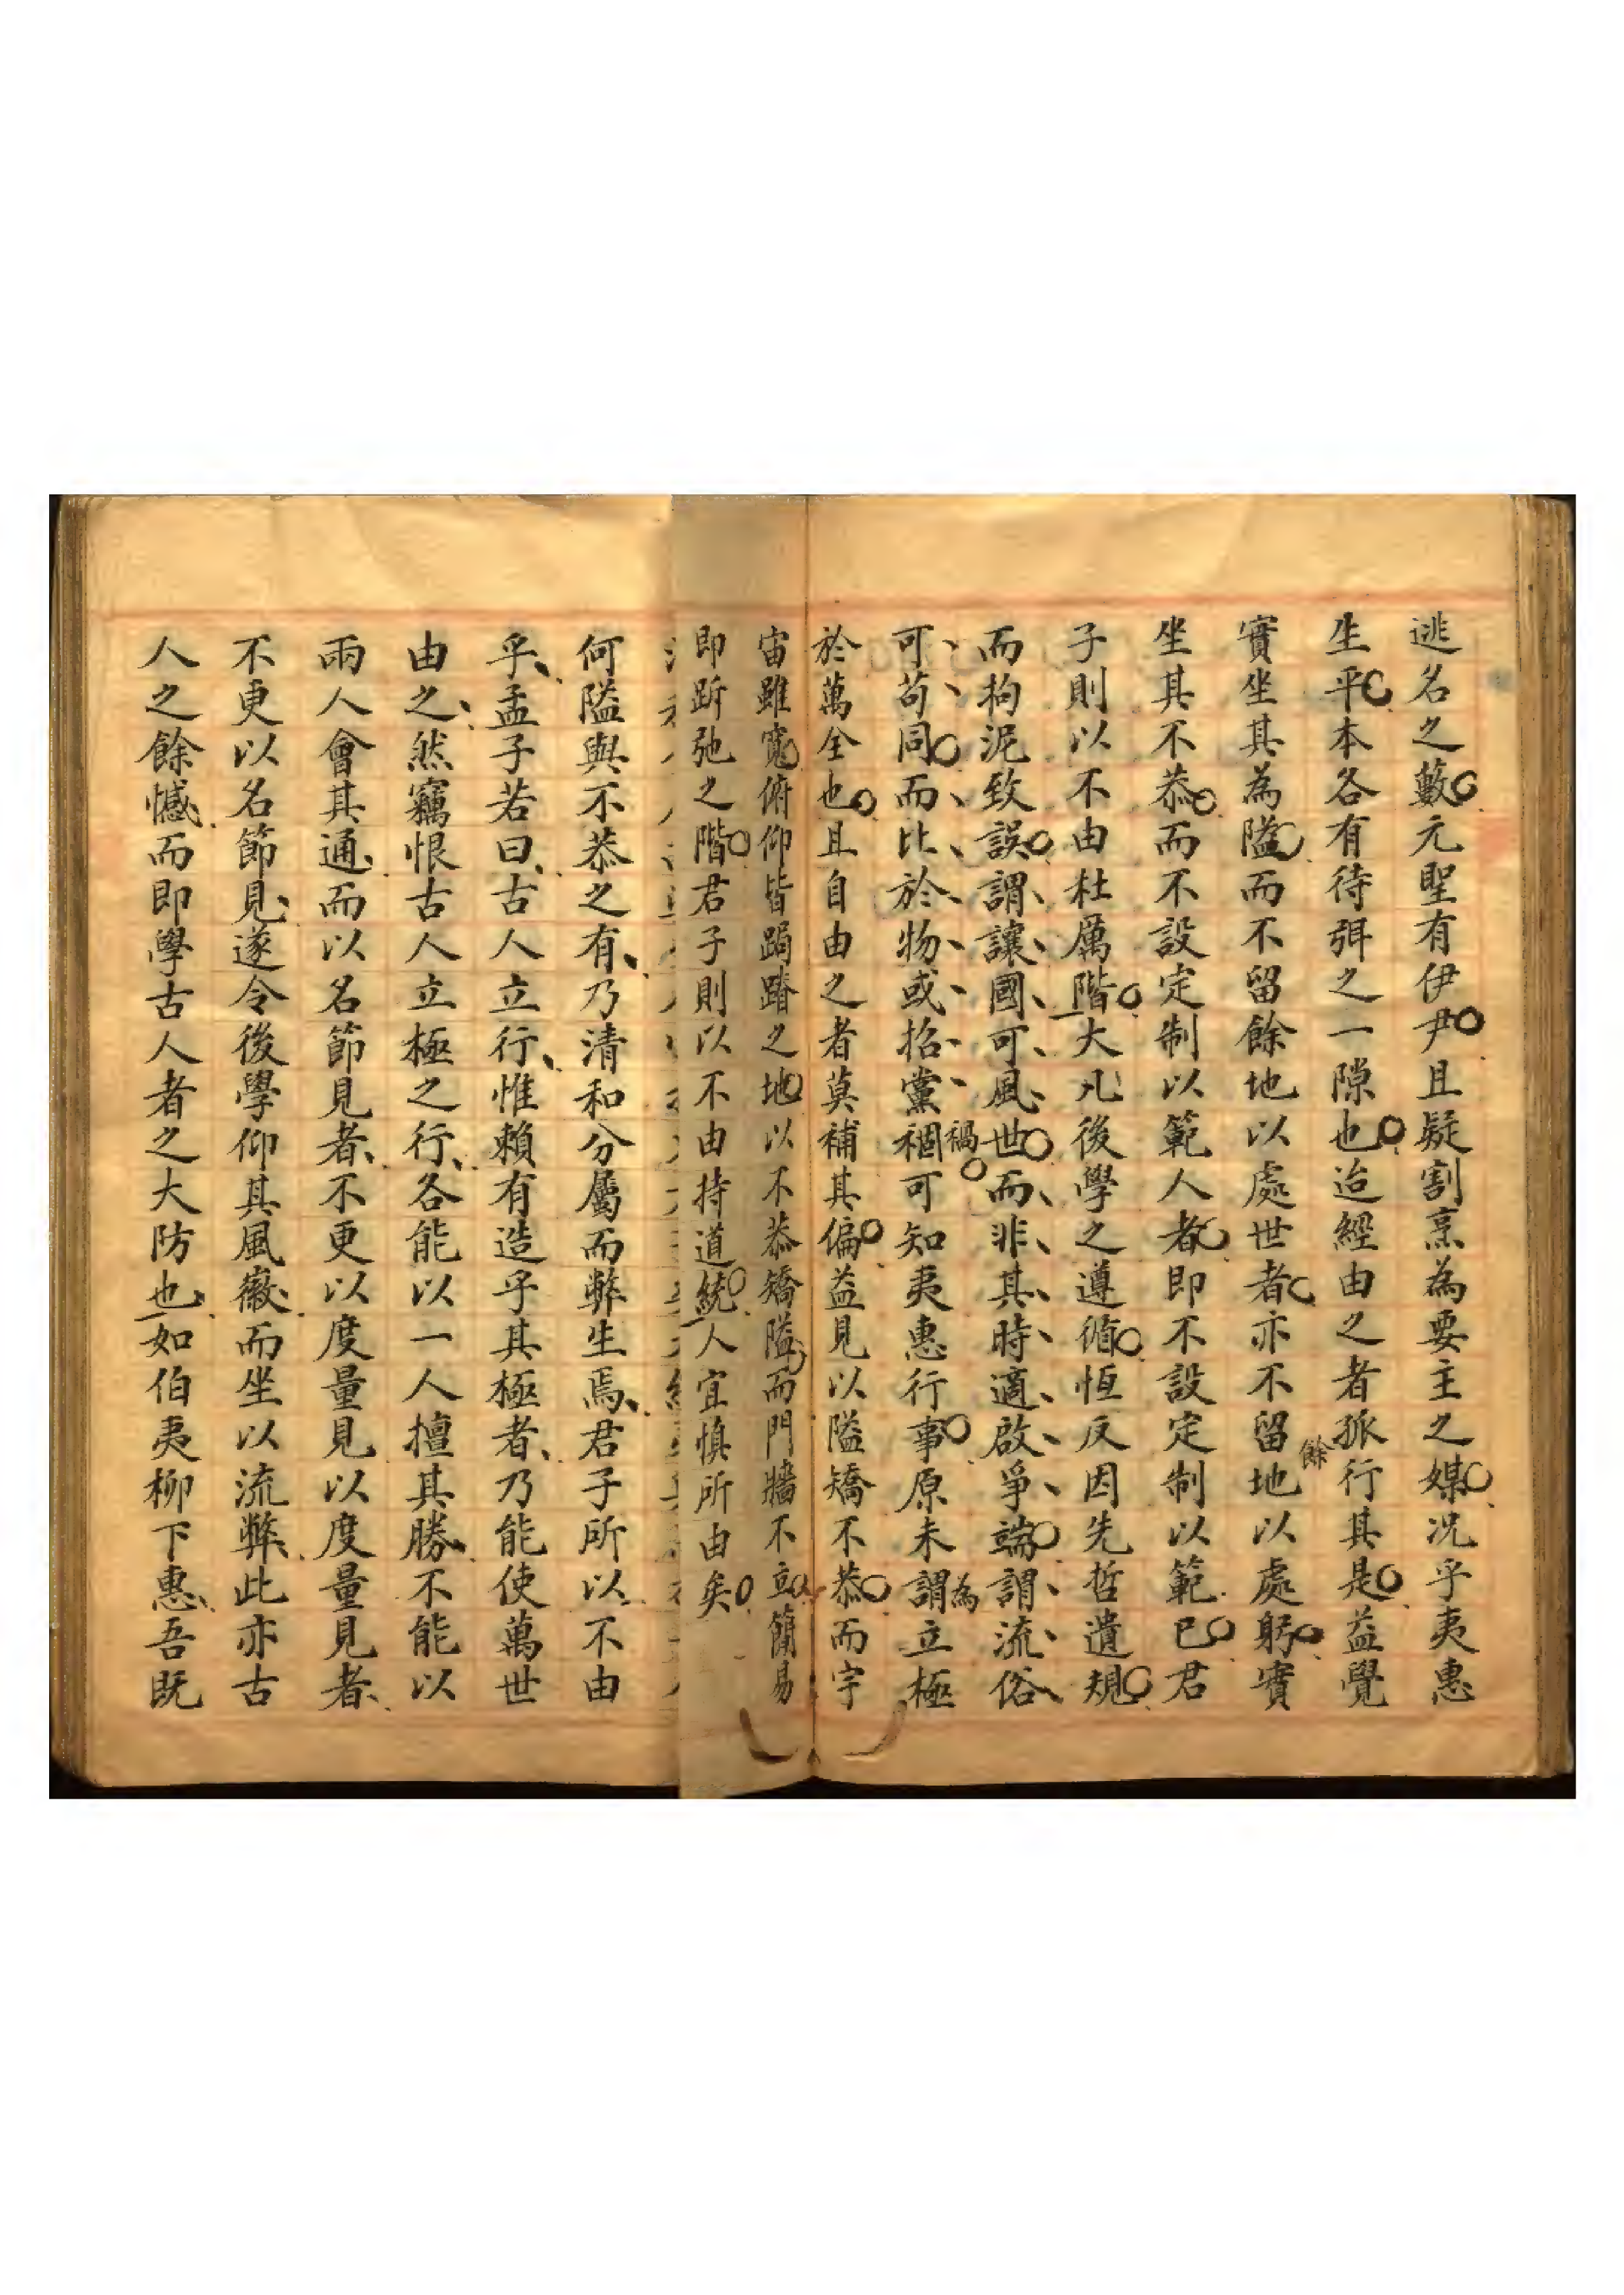 逃名之藪元聖有伊尹且疑割烹為要主之媒況乎夷惠
生平本各有待弭之一隙也迨經由之者孤行其是益覺
實坐其為隘而不留餘地以處世者亦不留餘地以處躬實
坐其不恭而不設定制以範人者即不設定制以範已君
子則以不由杜厲階大凡後學之遵循恒反因先哲遺規
而拘泥致誤謂讓國可風世而非其時適啟爭端謂流俗
可苟同而比於物或招黨禍可知夷惠行事原未為立極
於萬全也且自由之者莫補其偏益見以隘矯不恭而宇
宙雖寬俯仰皆跼蹐之地以不恭矯隘而門牆不立簡易
即跅弛之階君子則以不由持道統人宜慎所由矣
何隘與不恭之有乃清和分屬而弊生焉君子所以不由
乎孟子若曰古人立行惟賴有造乎其極者乃能使萬世
由之然竊恨古人立極之行各能以一人擅其勝不能以
兩人會其通而以名節見者不更以度量見以度量見者
不更以名節見遂令後學仰其風徽而坐以流弊此亦古
人之餘憾而即學古人者之大防也如伯夷柳下惠吾既